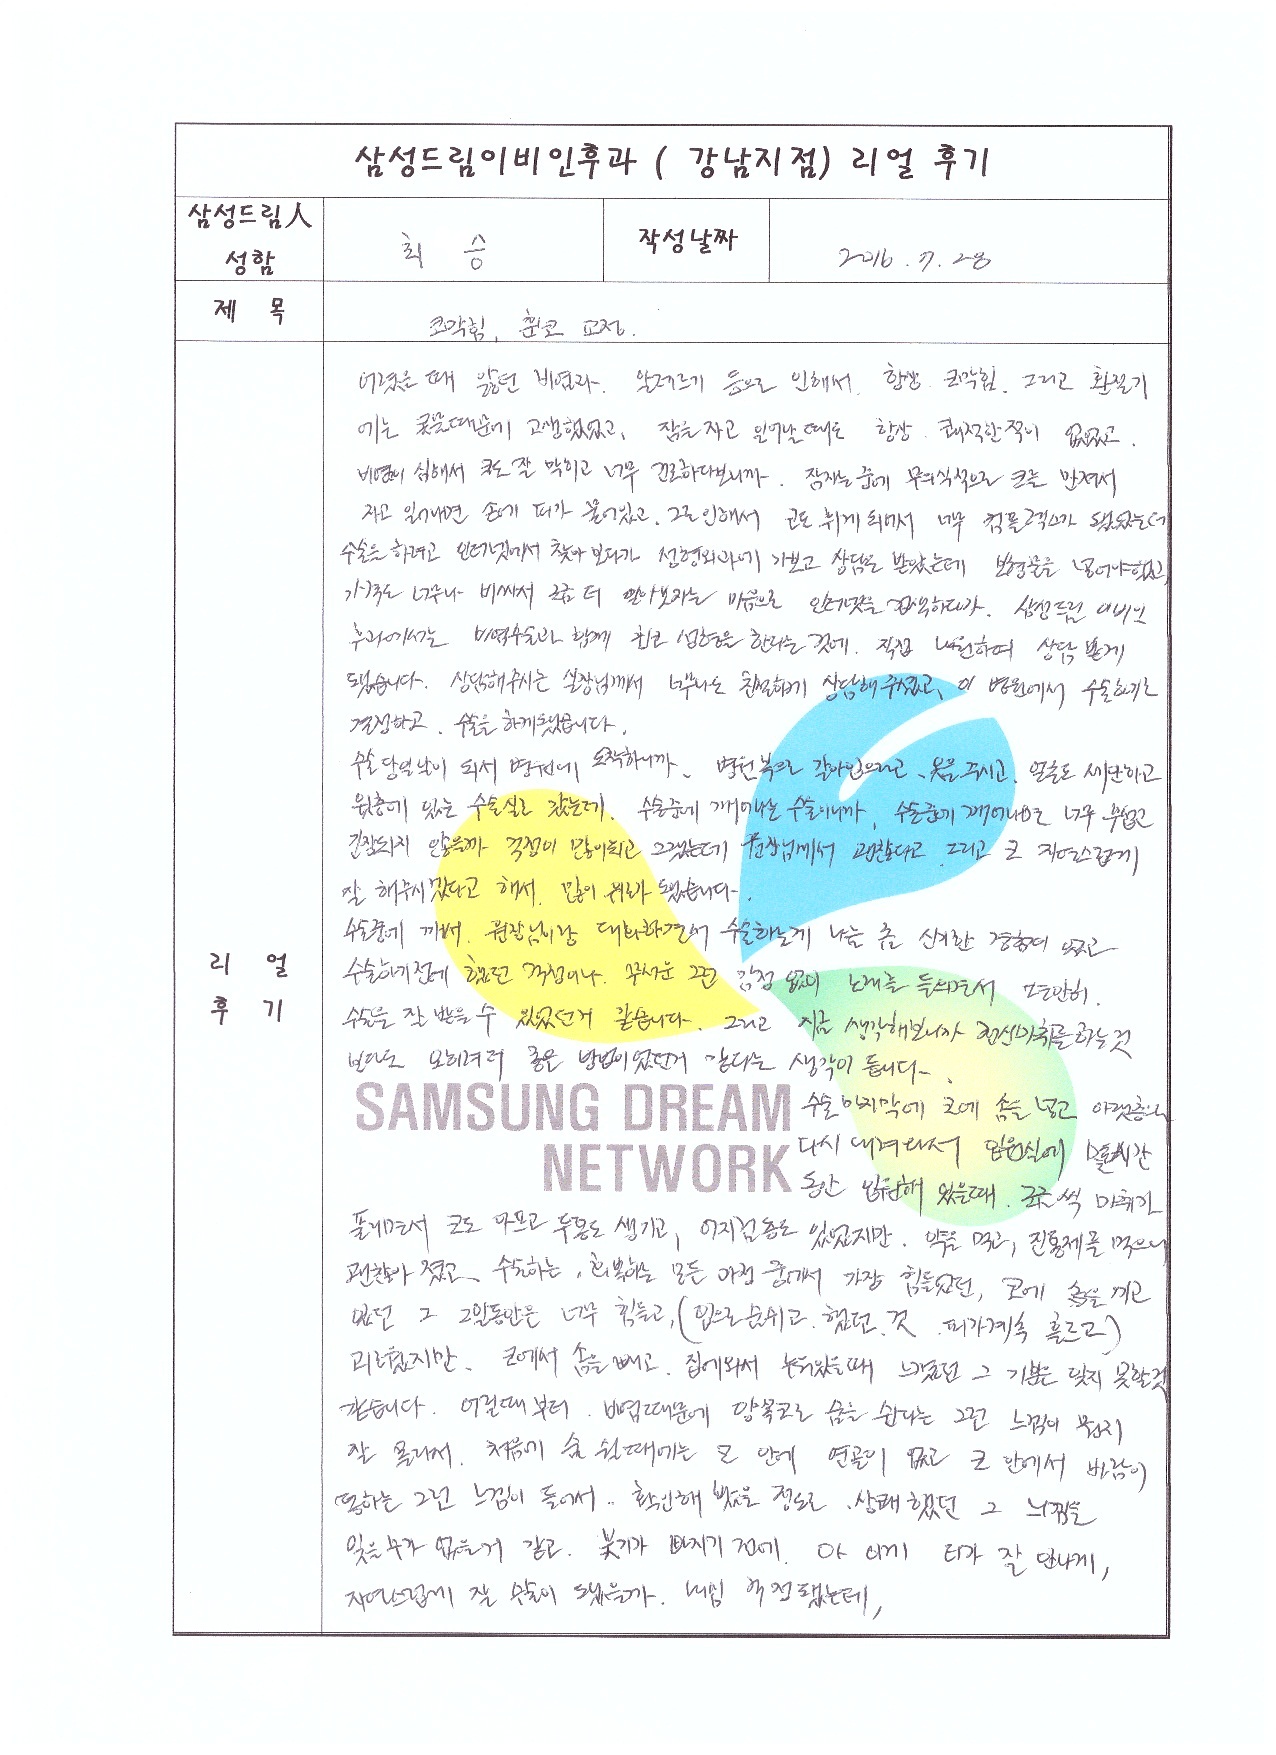 삼성드림이비인후과 ( 강남지점) 리얼 후기
삼성드림人
성함
최 승
작성날짜
2016. 7. 28
제 목
코막힘, 휜코 교정.
리 얼
후 기
어렸을 때 앓던 비염과. 알레르기 등으로 인해서. 항상 코막힘. 그리고 환절기
에는 콧물때문에 고생했었고, 잠을 자고 일어날때도 항상 쾌적한적이 없었고.
비염이 심해서 코도 잘 막히고 너무 건조하다보니까. 잠자는 중에 무의식적으로 코를 만져서
자고 일어나면 손에 피가 묻어있고. 그로인해서 코도 휘게 되면서 너무 컴플렉스가 됐었는데
수술을 하려고 인터넷에서 찾아 보다가 성형외과에 가보고 상담을 받았는데 보형물을 넣어야했고,
가격도 너무나 비싸서 조금 더 알아보자는 마음으로 인터넷을 검색하다가. 삼성드림 이비인
후과에서는 비염수술과 함께 휜코 성형을 한다는 것에. 직접 내원하여 상담 받게
됐습니다. 상담해주시는 실장님께서 너무나도 친절하게 상담해 주셨고, 이 병원에서 수술하기로
결정하고. 수술을 하게됐습니다.
수술 당일날이 되서 병원에 도착하니까. 병원복으로 갈아입으라고. 옷을 주시고. 얼굴도 세안하고
윗층에 있는 수술실로 갔는데. 수술중에 깨어나는 수술이니까, 수술중에 깨어나면 너무 무섭고
긴장되지 않을까 걱정이 많이되고 그랬는데 원장님께서 괜찮다고 그리고 코 자연스럽게
잘 해주시겠다고 해서. 많이 위로 됐습니다.
수술중에 깨서. 원장님이랑 대화하면서 수술하는게 나름 좀 신기한 경험이 었고
수술하기전에 했던 걱정이나. 무서운 그런 감정 없이 노래를 들으면서 편안히.
수술을 잘 받을 수 있었던거 같습니다. 그리고 지금 생각해보니까 전신마취를 하는 것
보다도 오히려 좋은 방법이었던거 같다는 생각이 듭니다.
SAMSUNG DREAM
NETWORK
수술 마지막에 코에 솜을 넣고 아랫층으로
다시 내려와서 입원실에 시간
동안 입원해 있을때. 조금씩 마취가
풀리면서 코도 아프고 두통도 생기고, 어지럼증도 있었지만. 약을 먹고, 진통제를 먹으니
괜찮아 졌고. 수술하는, 회복하는 모든 과정 중에서 가장 힘들었던, 코에 솜을 끼고
있던 그 2일동안은 너무 힘들고,(입으로 숨쉬고. 했던. 것 피가계속 흐르고)
괴로웠지만. 코에서 솜을 빼고. 집에와서 누워있을때 느꼈던 그 기분은 잊지 못할것
같습니다. 어릴때 부터. 비염때문에 양쪽코로 숨을 쉰다는 그런 느낌이 뭔지
잘 몰라서. 처음에 숨 쉴때에는 코 안에 연골이 없고 코 안에서 바람이
통하는 그런 느낌이 들어서.. 확인해 봤을 정도로 상쾌했던 그 느낌을
잊을수가 없을거 같고. 붓기가 빠지기 전에. 아 이게 티가 잘 안나게,
자연스럽게 잘 수술이 됐을까. 내심 걱정됐는데,